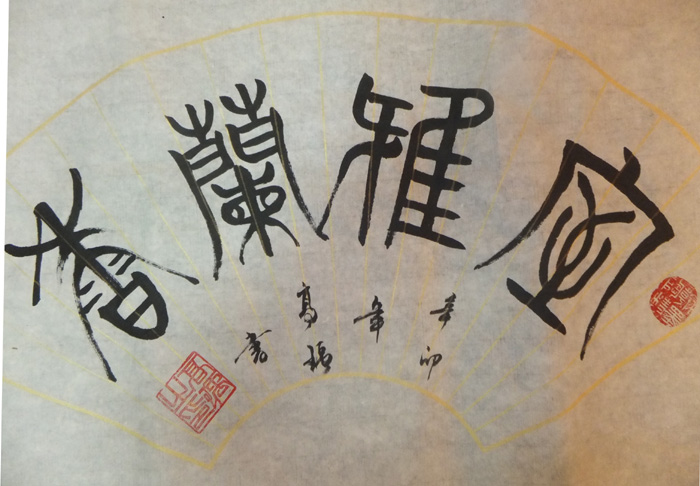 室雅蘭香
辛卯年高書